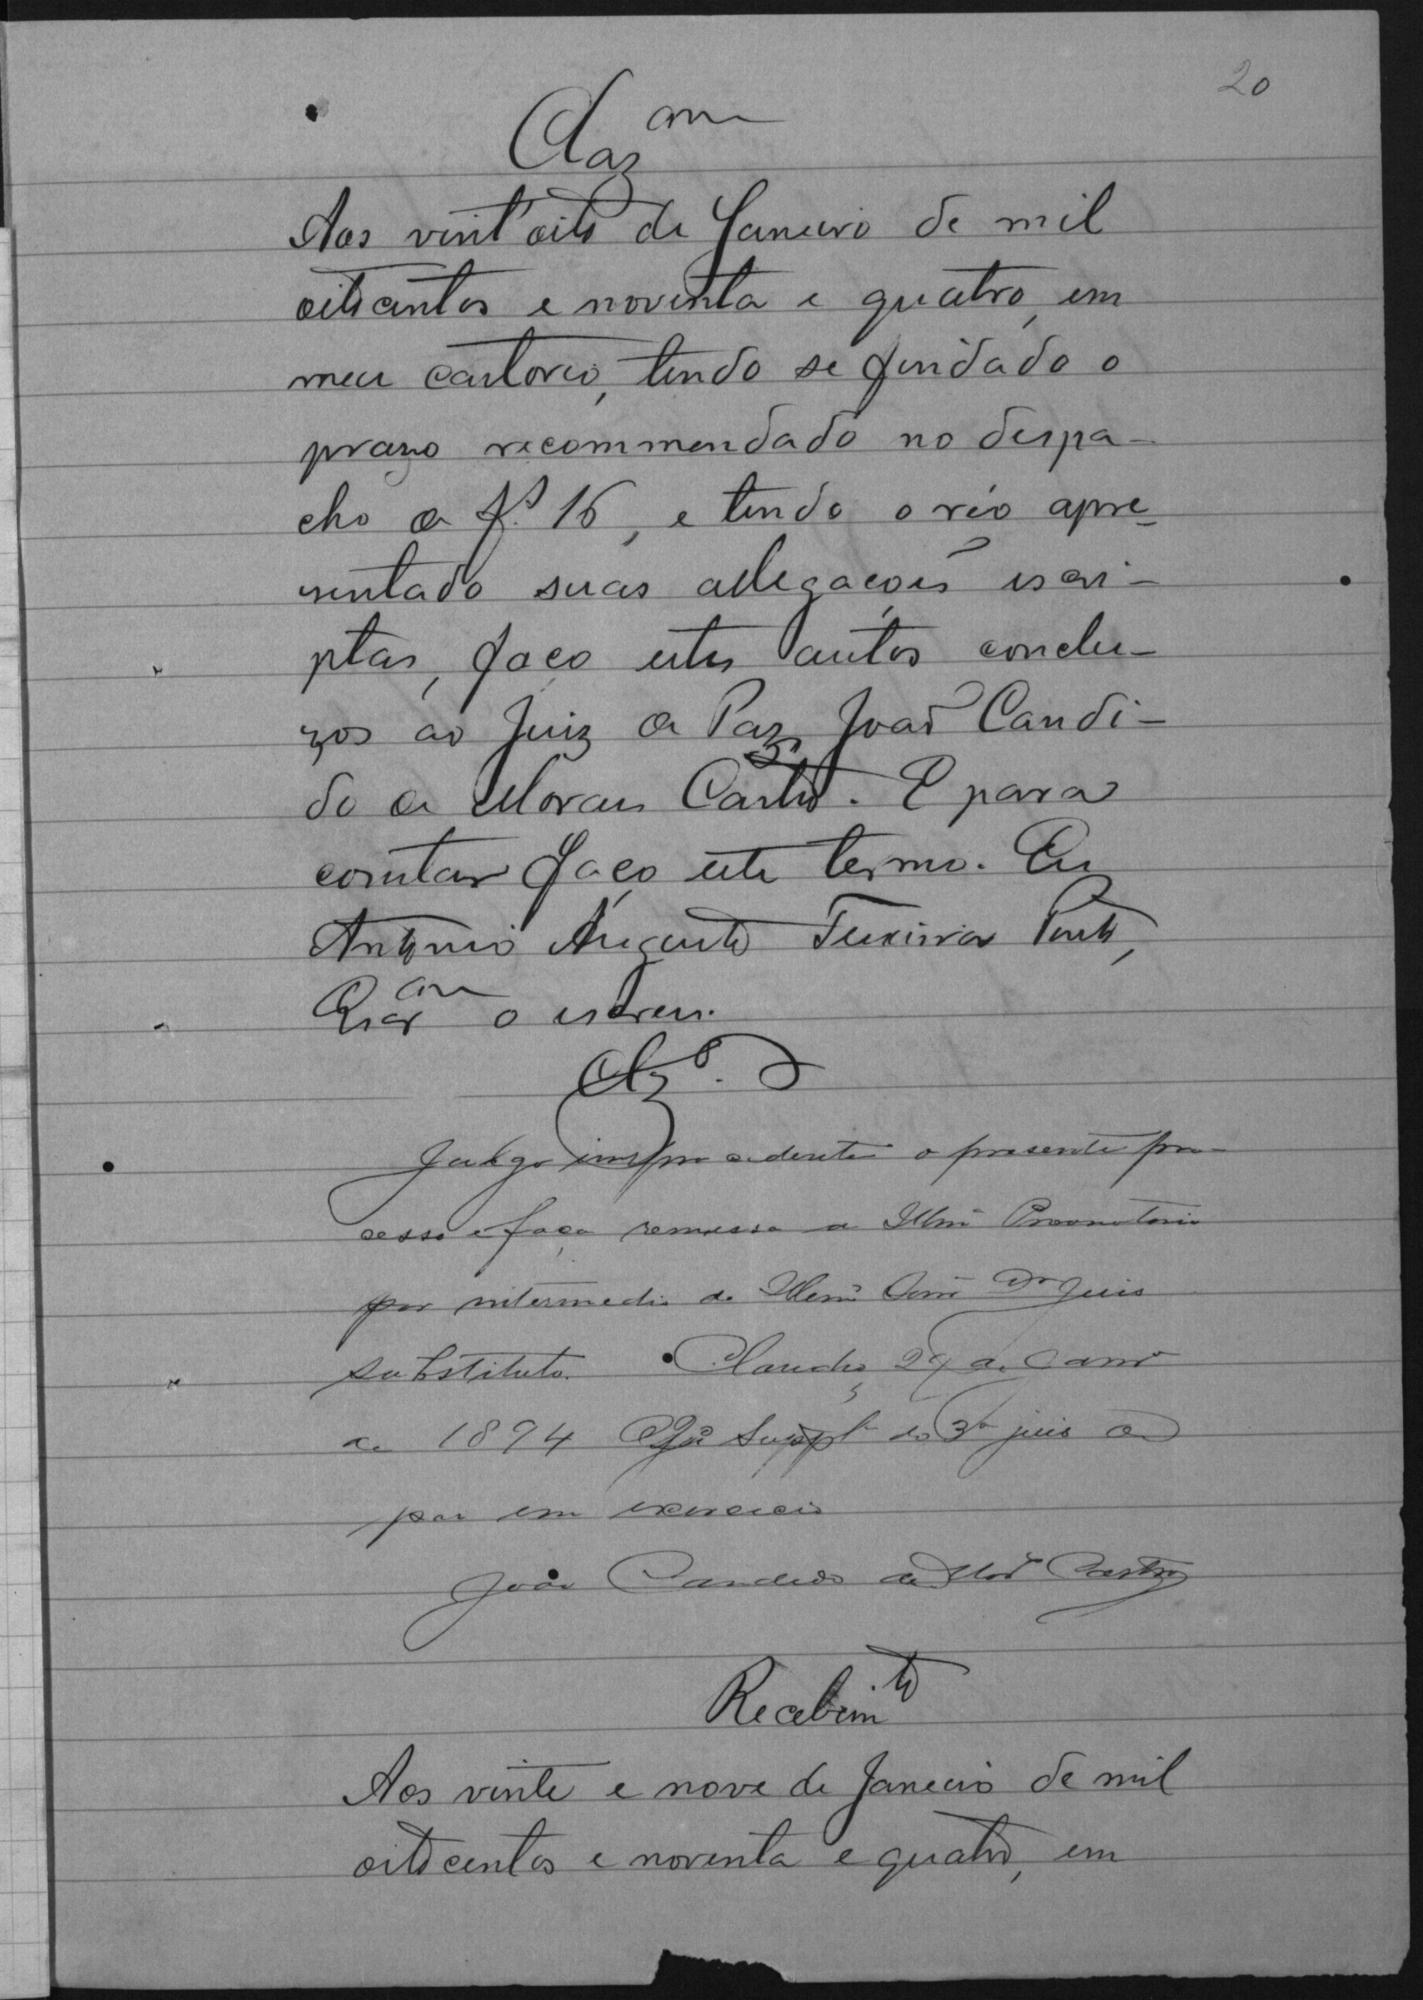 20
Clz am
Aos vint'oito de Janeiro de mil
oitocentos e noventa e quatro, em
meu cartorio, tendo se findado o
prazo recommendado no despa-
cho a fs. 16, e tendo o réo apre-
sentado suas allegações escri-
ptas, faço estes autos conclu-
zos ao Juiz de Paz João Candi-
do de Moraes Castro. E para
constar faço este termo. Eu
Antonio Augusto Teixeira Pinto,
Escr am o escrevi.
Clz os.
Julgo improcedente o presente pro-
cesso e faça remessa a Illmo Promotorio
por intermedio do Illmo Snr Dr Juis
substituto. Claudio 29 de Janro
de 1894 Suppl do 3º juis de
paz em exercicio
João Candido de Mor Castro
Recebimto
Aos vinte e nove de Janeiro de mil
oitocentos e noventa e quatro, em